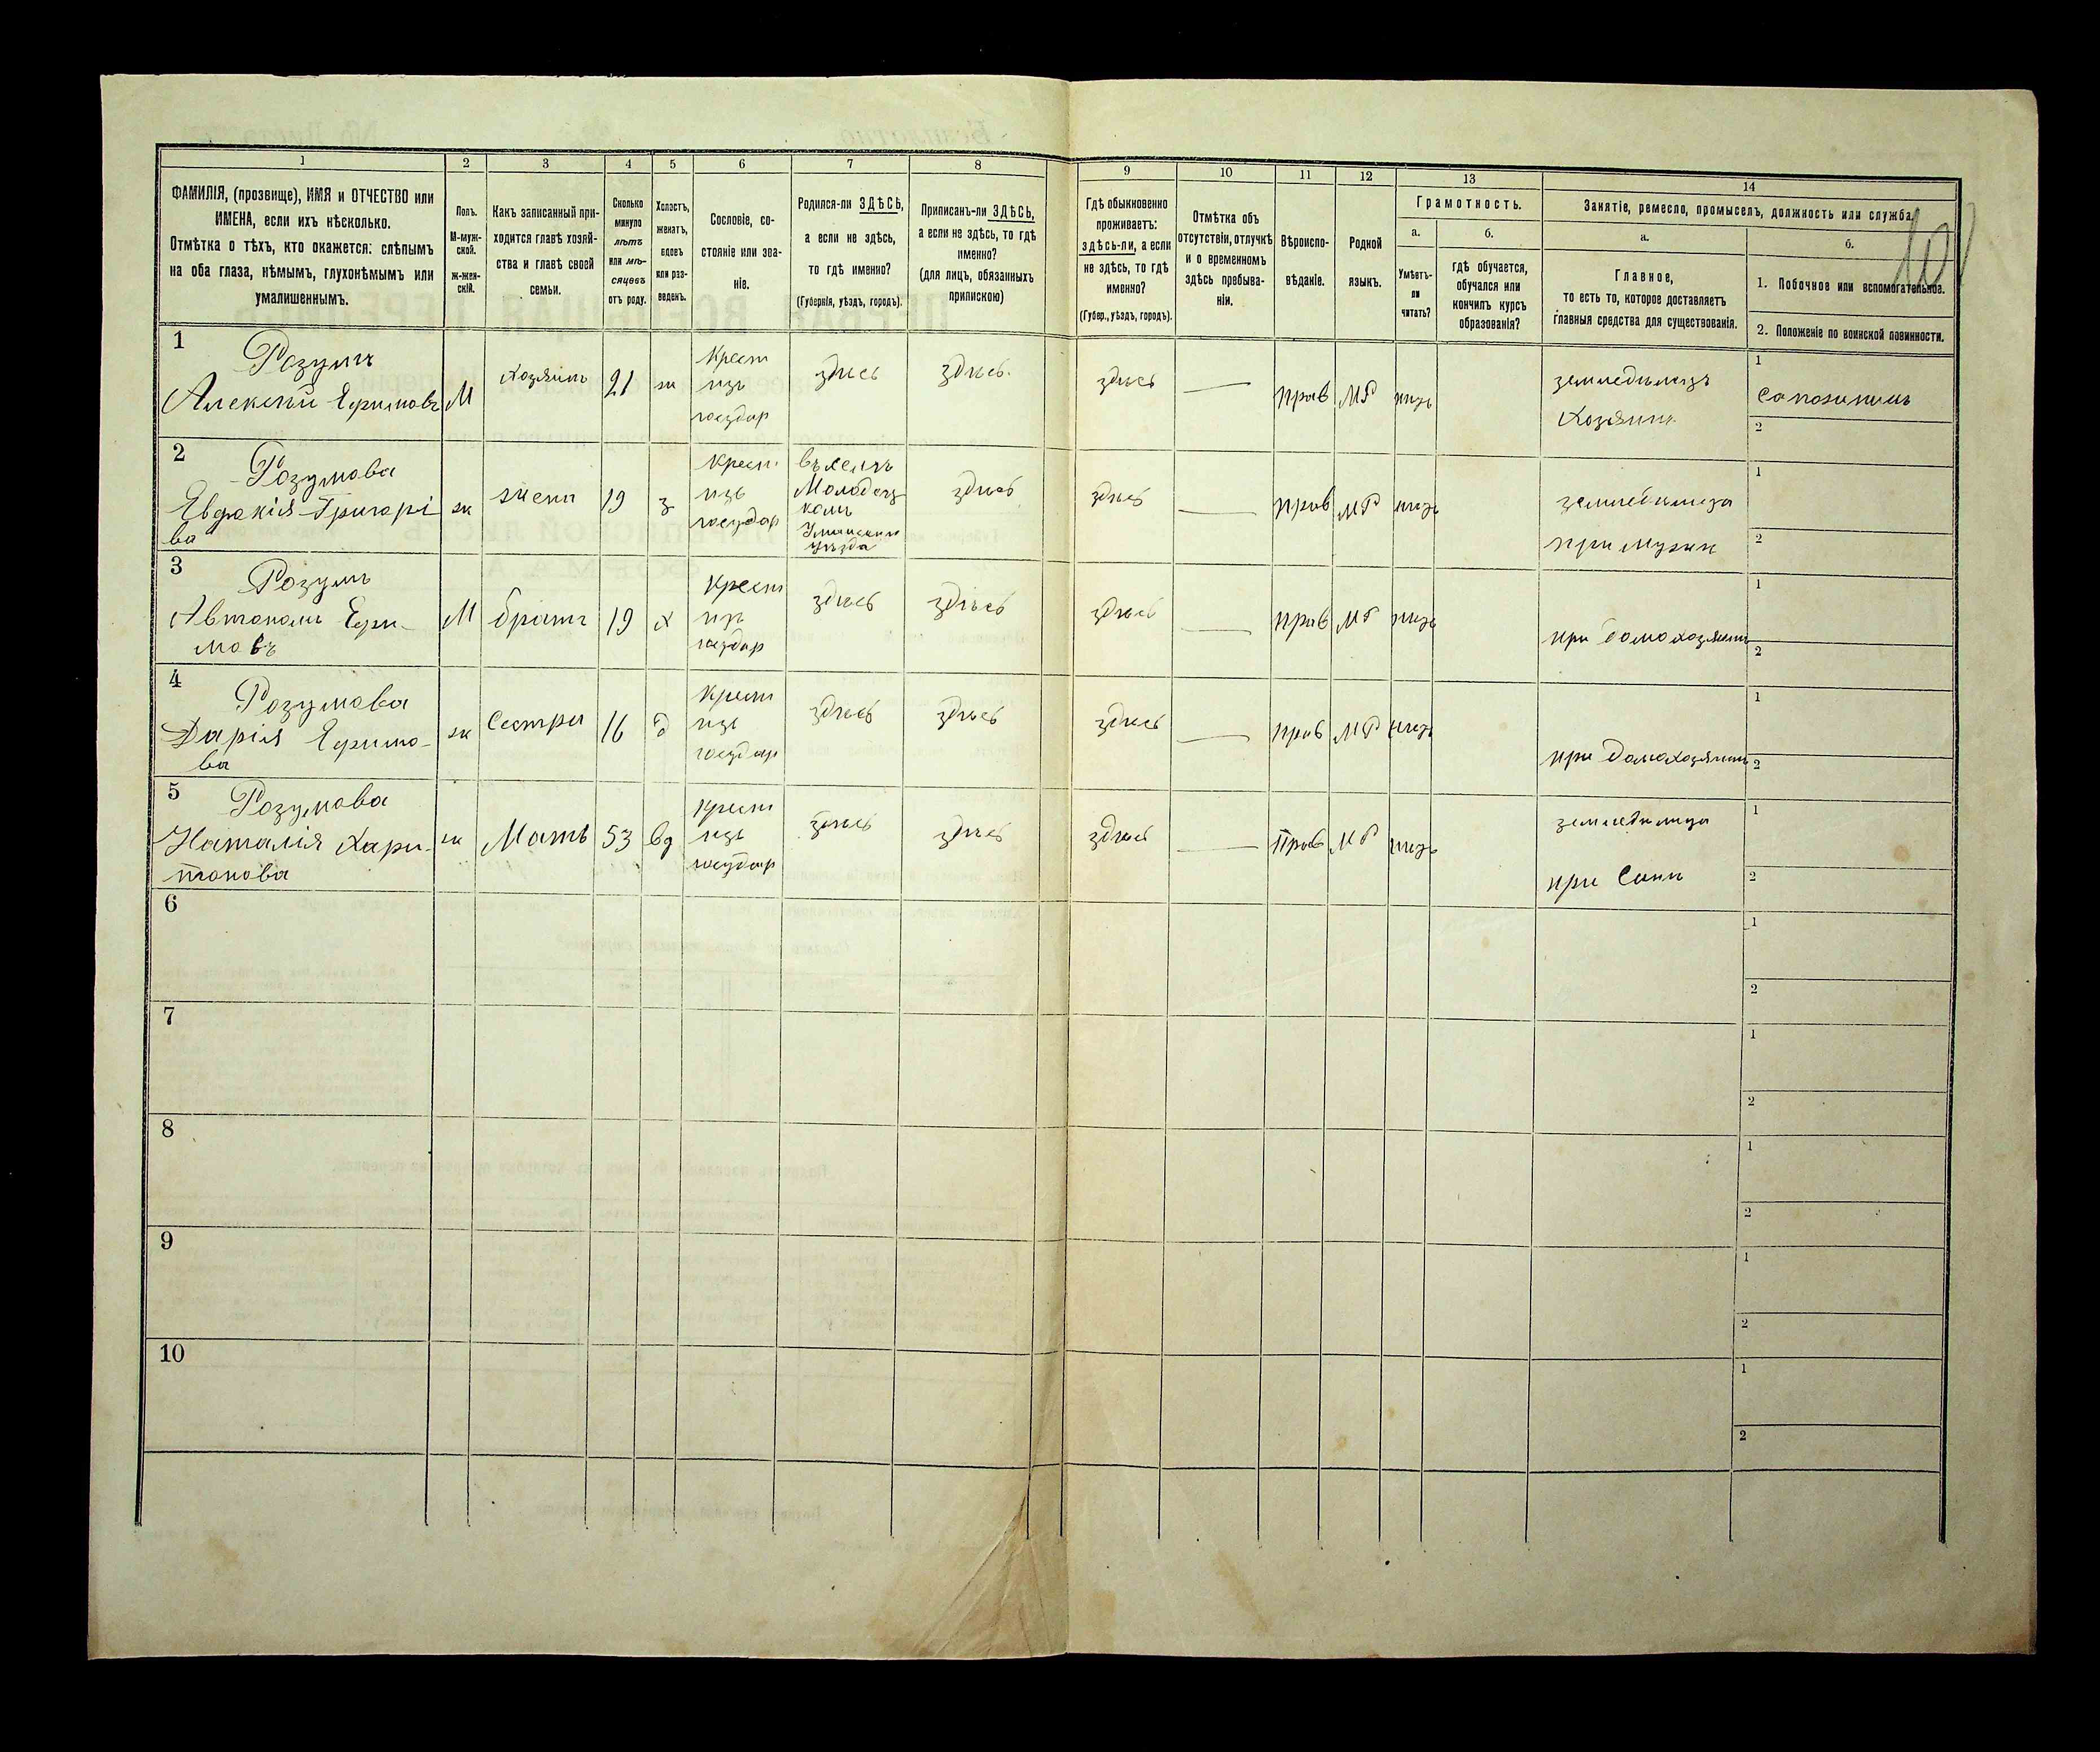 1 2 3 4 5 6 7 8 9 10 11 12 13 14
ФАМИЛІЯ, (прозвище), ИМЯ и ОТЧЕСТВО или
ИМЕНА, если ихъ нѣсколько.
Отмѣтка о тѣхъ, кто окажется: слѣпымъ
на оба глаза, нѣмымъ, глухонѣмымъ или
умалишеннымъ.
Полъ.
М-муж-
ской.
ж-жен-
скій.
Какъ записанный при-
ходится главѣ хозяй-
ства и главѣ своей
семьи.
Сколько
минуло
лѣтъ
или мѣ-
сяцевъ
отъ роду.
Холостъ,
женатъ,
вдовъ
или раз-
веденъ.
Сословіе, со-
стояніе или зва-
ніе.
Родился-ли ЗДѢСЬ,
а если не здѣсь,
то гдѣ именно?
(Губернія, уѣздъ, городъ).
Приписанъ-ли ЗДѢСЬ,
а если не здѣсь, то гдѣ
именно?
(для лицъ, обязанныхъ
припискою)
Гдѣ обыкновенно
проживаетъ:
здѣсь-ли, а если
не здѣсь, то гдѣ
именно?
(Губер., уѣздъ, городъ).
Отмѣтка объ
отсутствіи, отлучкѣ
и о временномъ
здѣсь пребыва-
ніи.
Вѣроиспо-
вѣданіе.
Родной
языкъ.
Грамотность.
а.
Умѣетъ-
ли
читать?
б.
гдѣ обучается,
обучался или
кончилъ курсъ
образованія?
Занятіе, ремесло, промыселъ, должность или служба.
а.
Главное,
то есть то, которое доставляетъ
главныя средства для существованія.
б.
1. Побочное или вспомогательное.
2. Положеніе по воинской повинности.
1
Розумъ
Алексѣй Ефимовъ
М
Хозяинъ
21
ж
Крест
изъ
государ
здѣсь
здѣсь.
здѣсь
—
прав
МР
нѣтъ
земледѣлецъ
Хозяинъ
1
Сапожникъ
2
2
Розумова
Евдокія Григорі
ва
ж
жена
19
з
Крест
изъ
государ
въ селѣ
Молодец
комъ
Уманскаго
уѣзда
здѣсь
здѣсь
—
прав
МР
нѣтъ
земледѣлица
при мужѣ
1
2
3
Розумъ
Автономъ Ефи-
мовъ
М
братъ
19
х
Крест
изъ
государ
здѣсь
здѣсь
здѣсь
—
прав
МР
нѣтъ
при домохозяинѣ
1
2
4
Розумова
Дарія Ефимо-
ва
ж
Сестра
16
д
Крест
изъ
государ
здѣсь
здѣсь
здѣсь
—
прав
МР
нѣтъ
при домохозяинѣ
1
2
5
Розумова
Наталія Хари-
тонова
ж
Мать
53
вд
Крест
изъ
государ
здѣсь
здѣсь
здѣсь
—
прав
МР
нѣтъ
земледѣлица
при Сынѣ
1
2
6
1
2
7
1
2
8
1
2
9
1
2
10
1
2